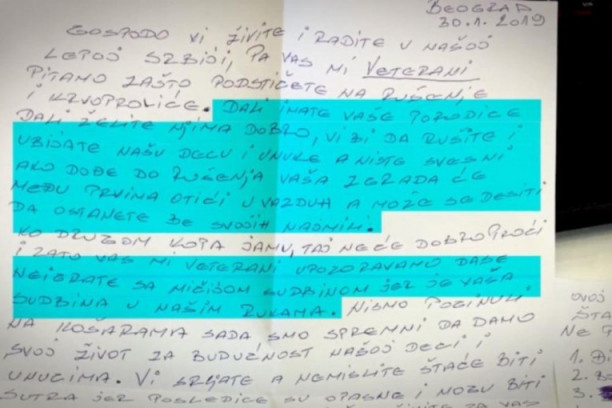 BEOGRAD
30.1.2019
GOSPODO VI ŽIVITE I RADITE U NAŠOJ
LEPOJ SRBIJI, PA VAS MI VETERANI
PITAMO ZAŠTO PODSTIČETE NA RUŠENJE
I KRVOPROLIĆE. DALI IMATE VAŠE PORODICE
DALI ŽELITE NJIMA DOBRO, VI BI DA RUŠITE I
UBIJATE NAŠU DECU I UNUKE A NISTE SVESNI
AKO DOĐE DO RUŠENJA VAŠA ZGRADA ĆE
MEĐU PRVIMA OTIĆI U VAZDUH A MOŽE SE DESITI
DA OSTANETE BE SVOJIH NAJMIH.
KO DRUGOM KOPA JAMU, TAJ NEĆE DOBRO PROĆI
I ZATO VAS MI VETERANI UPOZORAVAMO DASE
NEIGRATE SA NIČIJOM SUDBINOM JER JE VAŠA
SUDBINA U NAŠIM RUKAMA. NISMO POGINULI
NA KOŠARAMA SADA SMO SPREMNI DA DAMO
SVOJ ŽIVOT ZA BUDUĆNOST NAŠOJ DECI I
UNUCIMA. VI SRLJATE A NEMISLITE ŠTAĆE BITI
SUTRA JER POSLEDICE SU OPASNE I MOGU BITI
ZA VAS
OVOJ
ŠTA
NE
1.
2.
3.